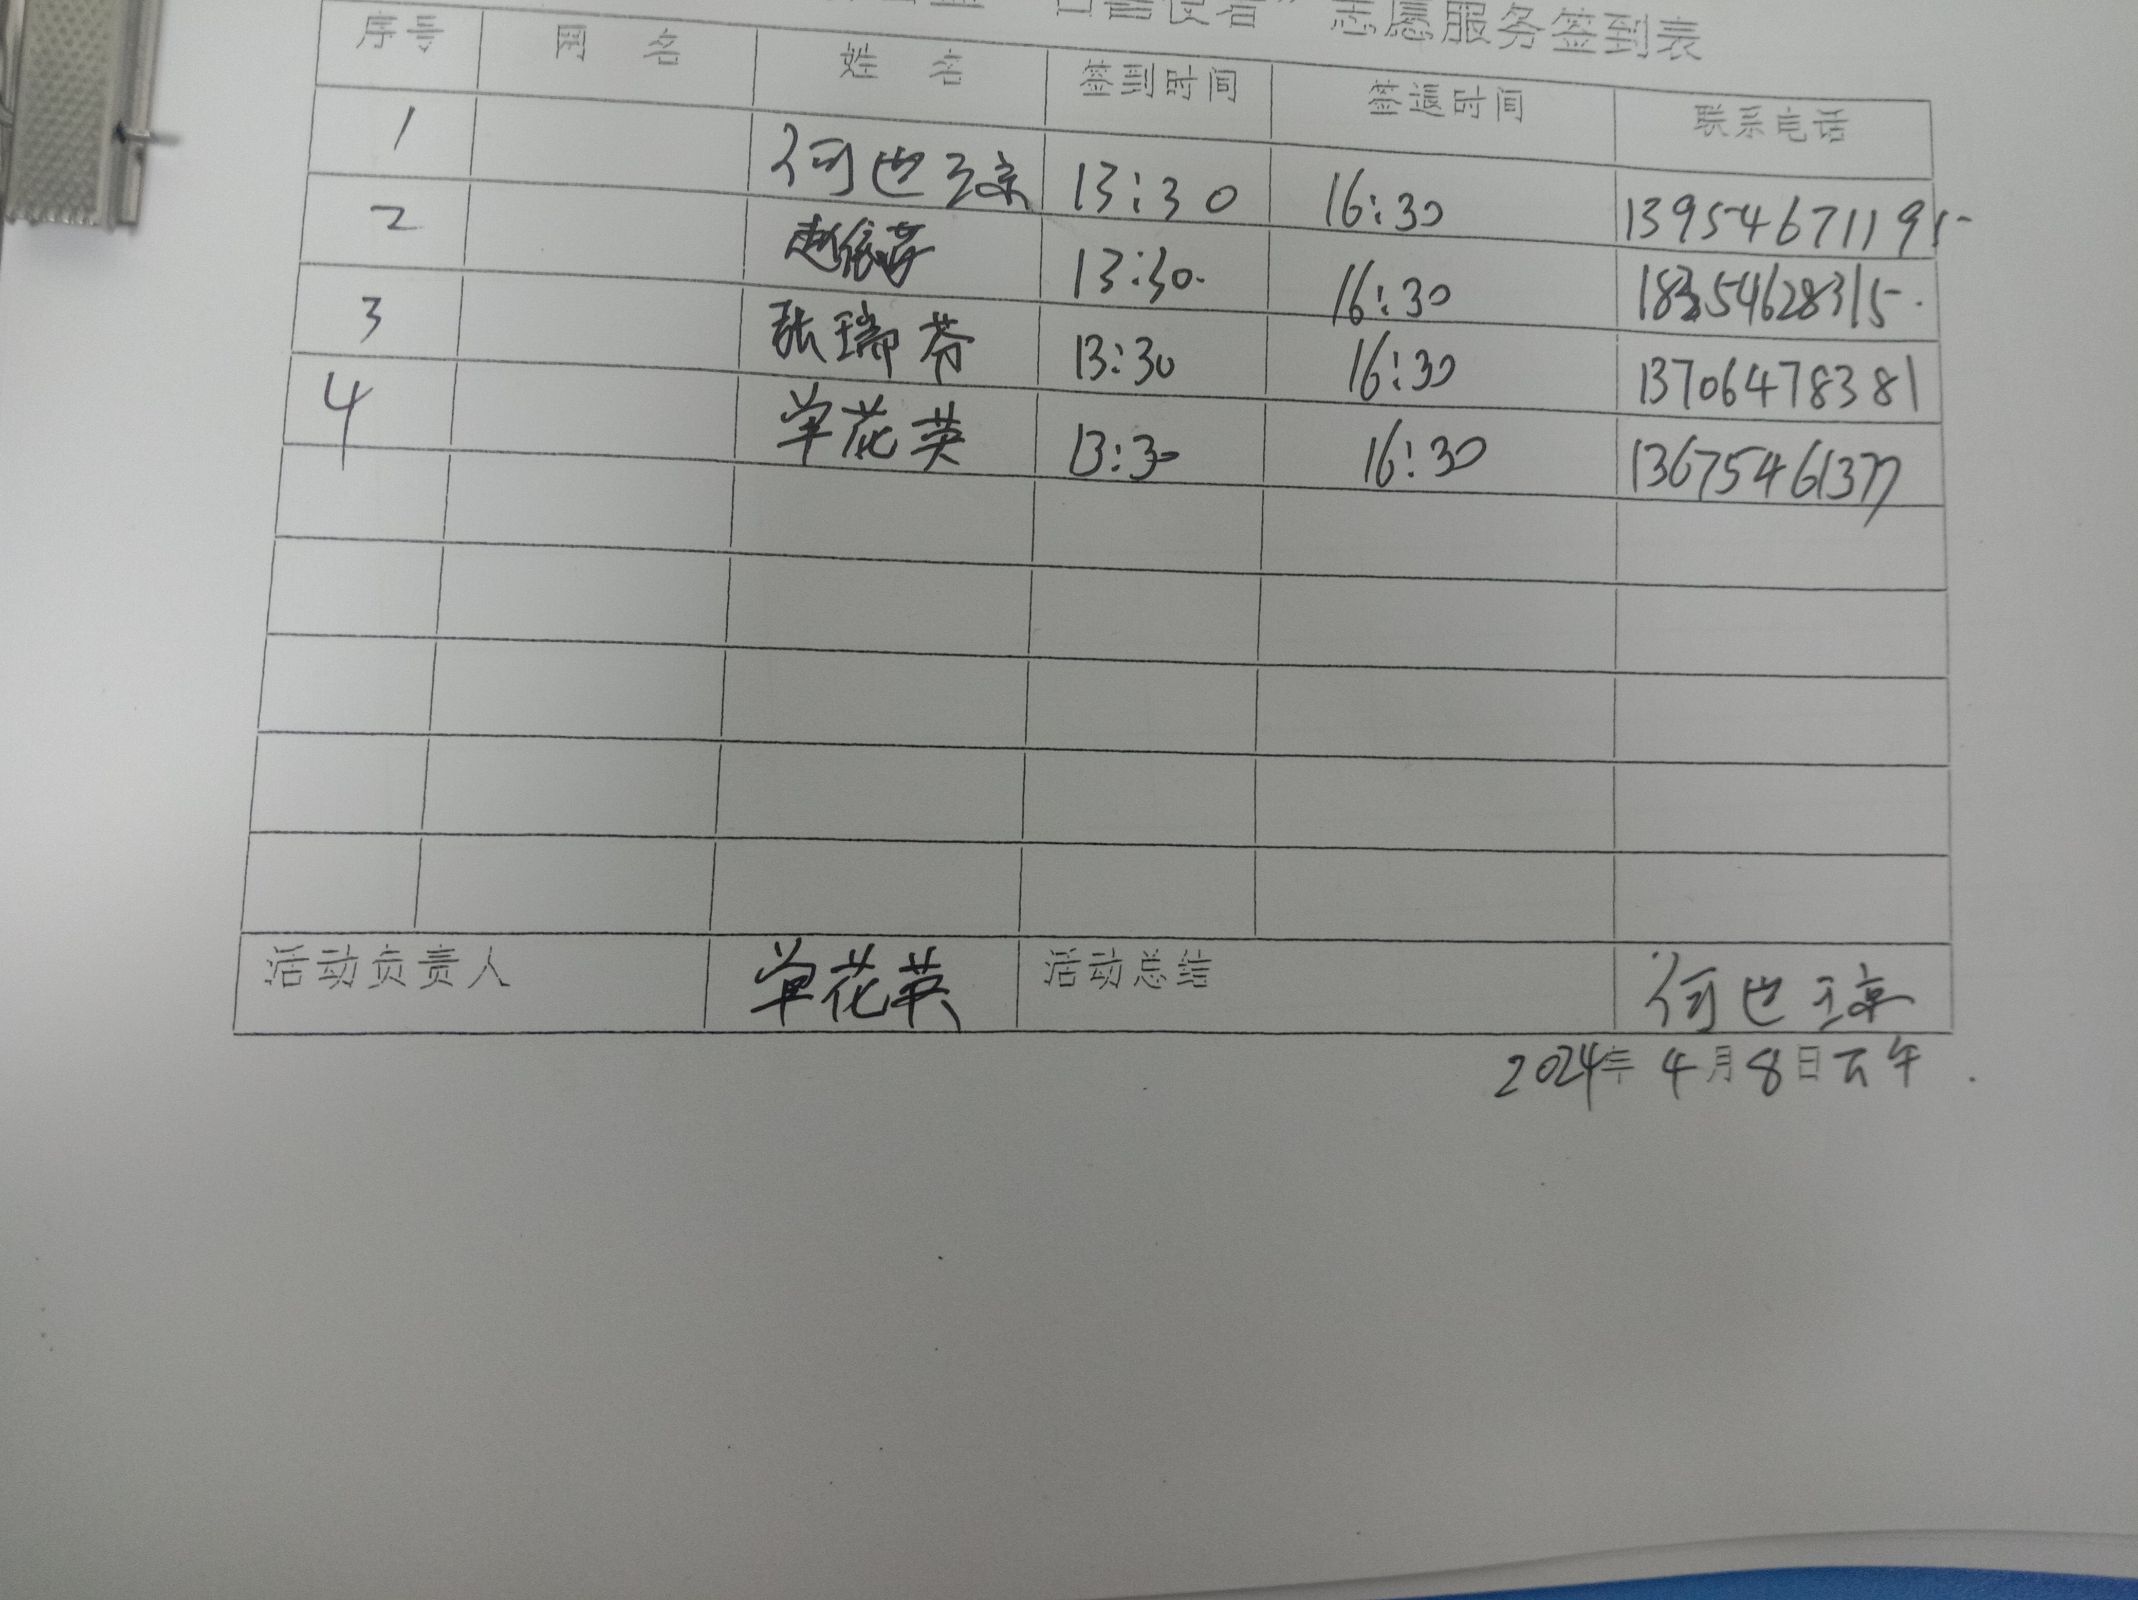 白善使者”志愿服务签到表
序号 网名 姓名 签到时间 签退时间 联系电话
1 何也琼 13:30 16:30 13954671195
2 赵依芬 13:30 16:30 18354628315
3 张瑞芬 13:30 16:30 13706478381
4 单花英 13:30 16:30 13675461377
活动负责人 单花英 活动总结 何也琼
2024年4月8日下午